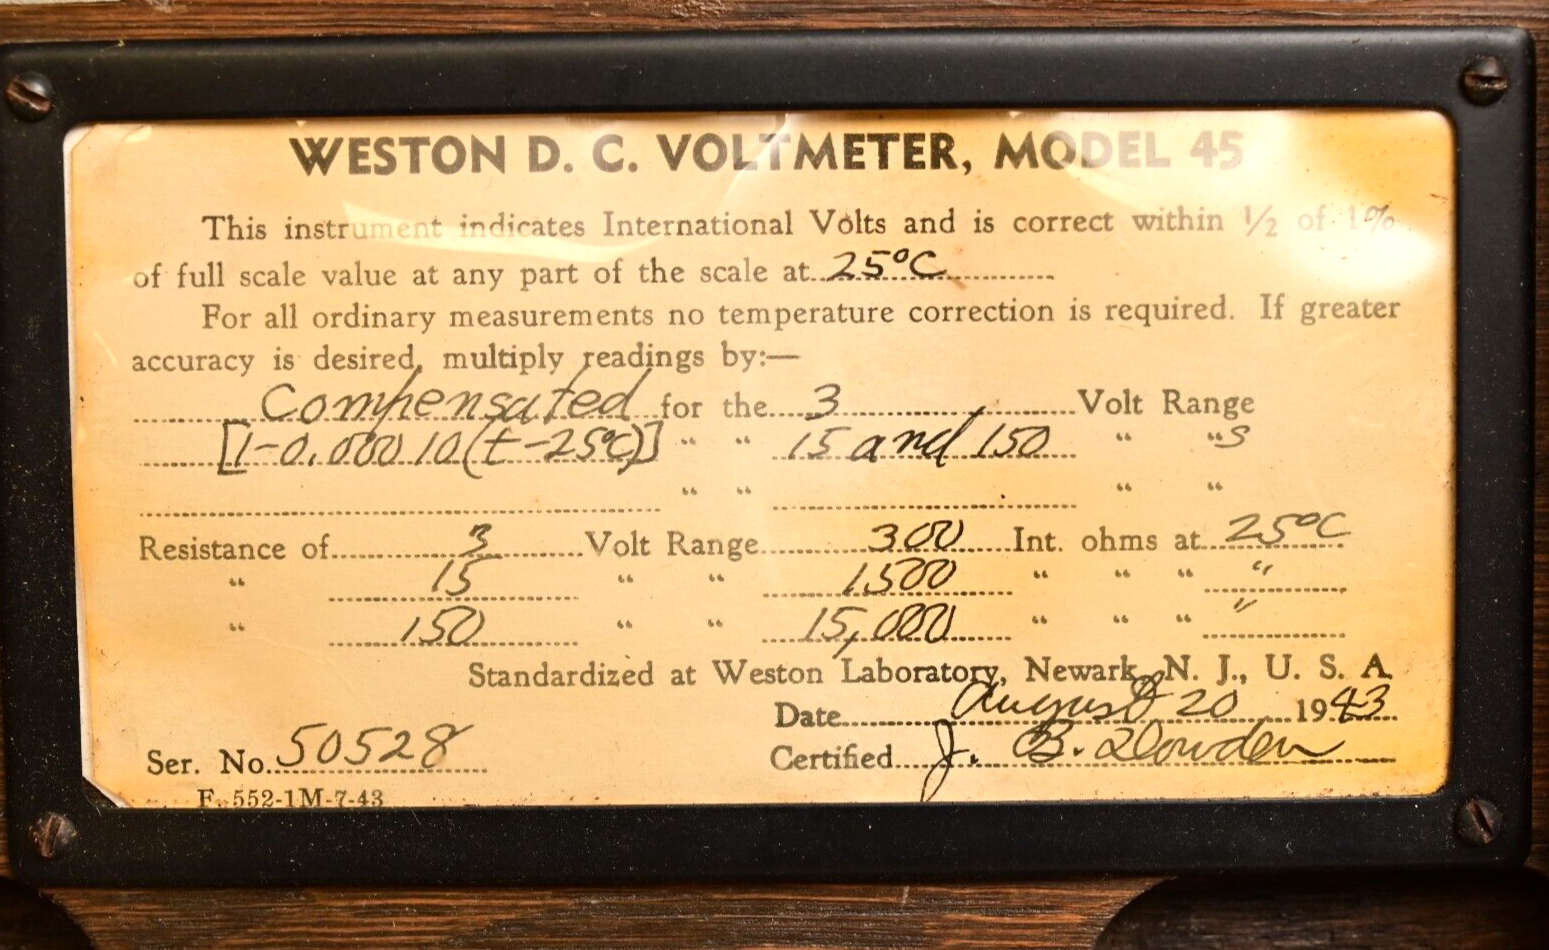 WESTON D. C. VOLTMETER, MODEL 45
This instrument indicates International Volts and is correct within ½ of 1%
of full scale value at any part of the scale at 25°C
For all ordinary measurements no temperature correction is required. If greater
accuracy is desired, multiply readings by:—
Compensated for the 3 Volt Range
[1-0.00010(t-25°C)] “ “ 15 and 150 “ “s
“ “ “ “
Resistance of 3 Volt Range 300 Int. ohms at 25°C
“ 15 “ “ 1500 “ “ “ “
“ 150 “ “ 15,000 “ “ “ “
Standardized at Weston Laboratory, Newark, N. J., U. S. A
Date August 20 1943
Ser. No. 50528 Certified J. B. Dowden
F. 552-1M-7-43